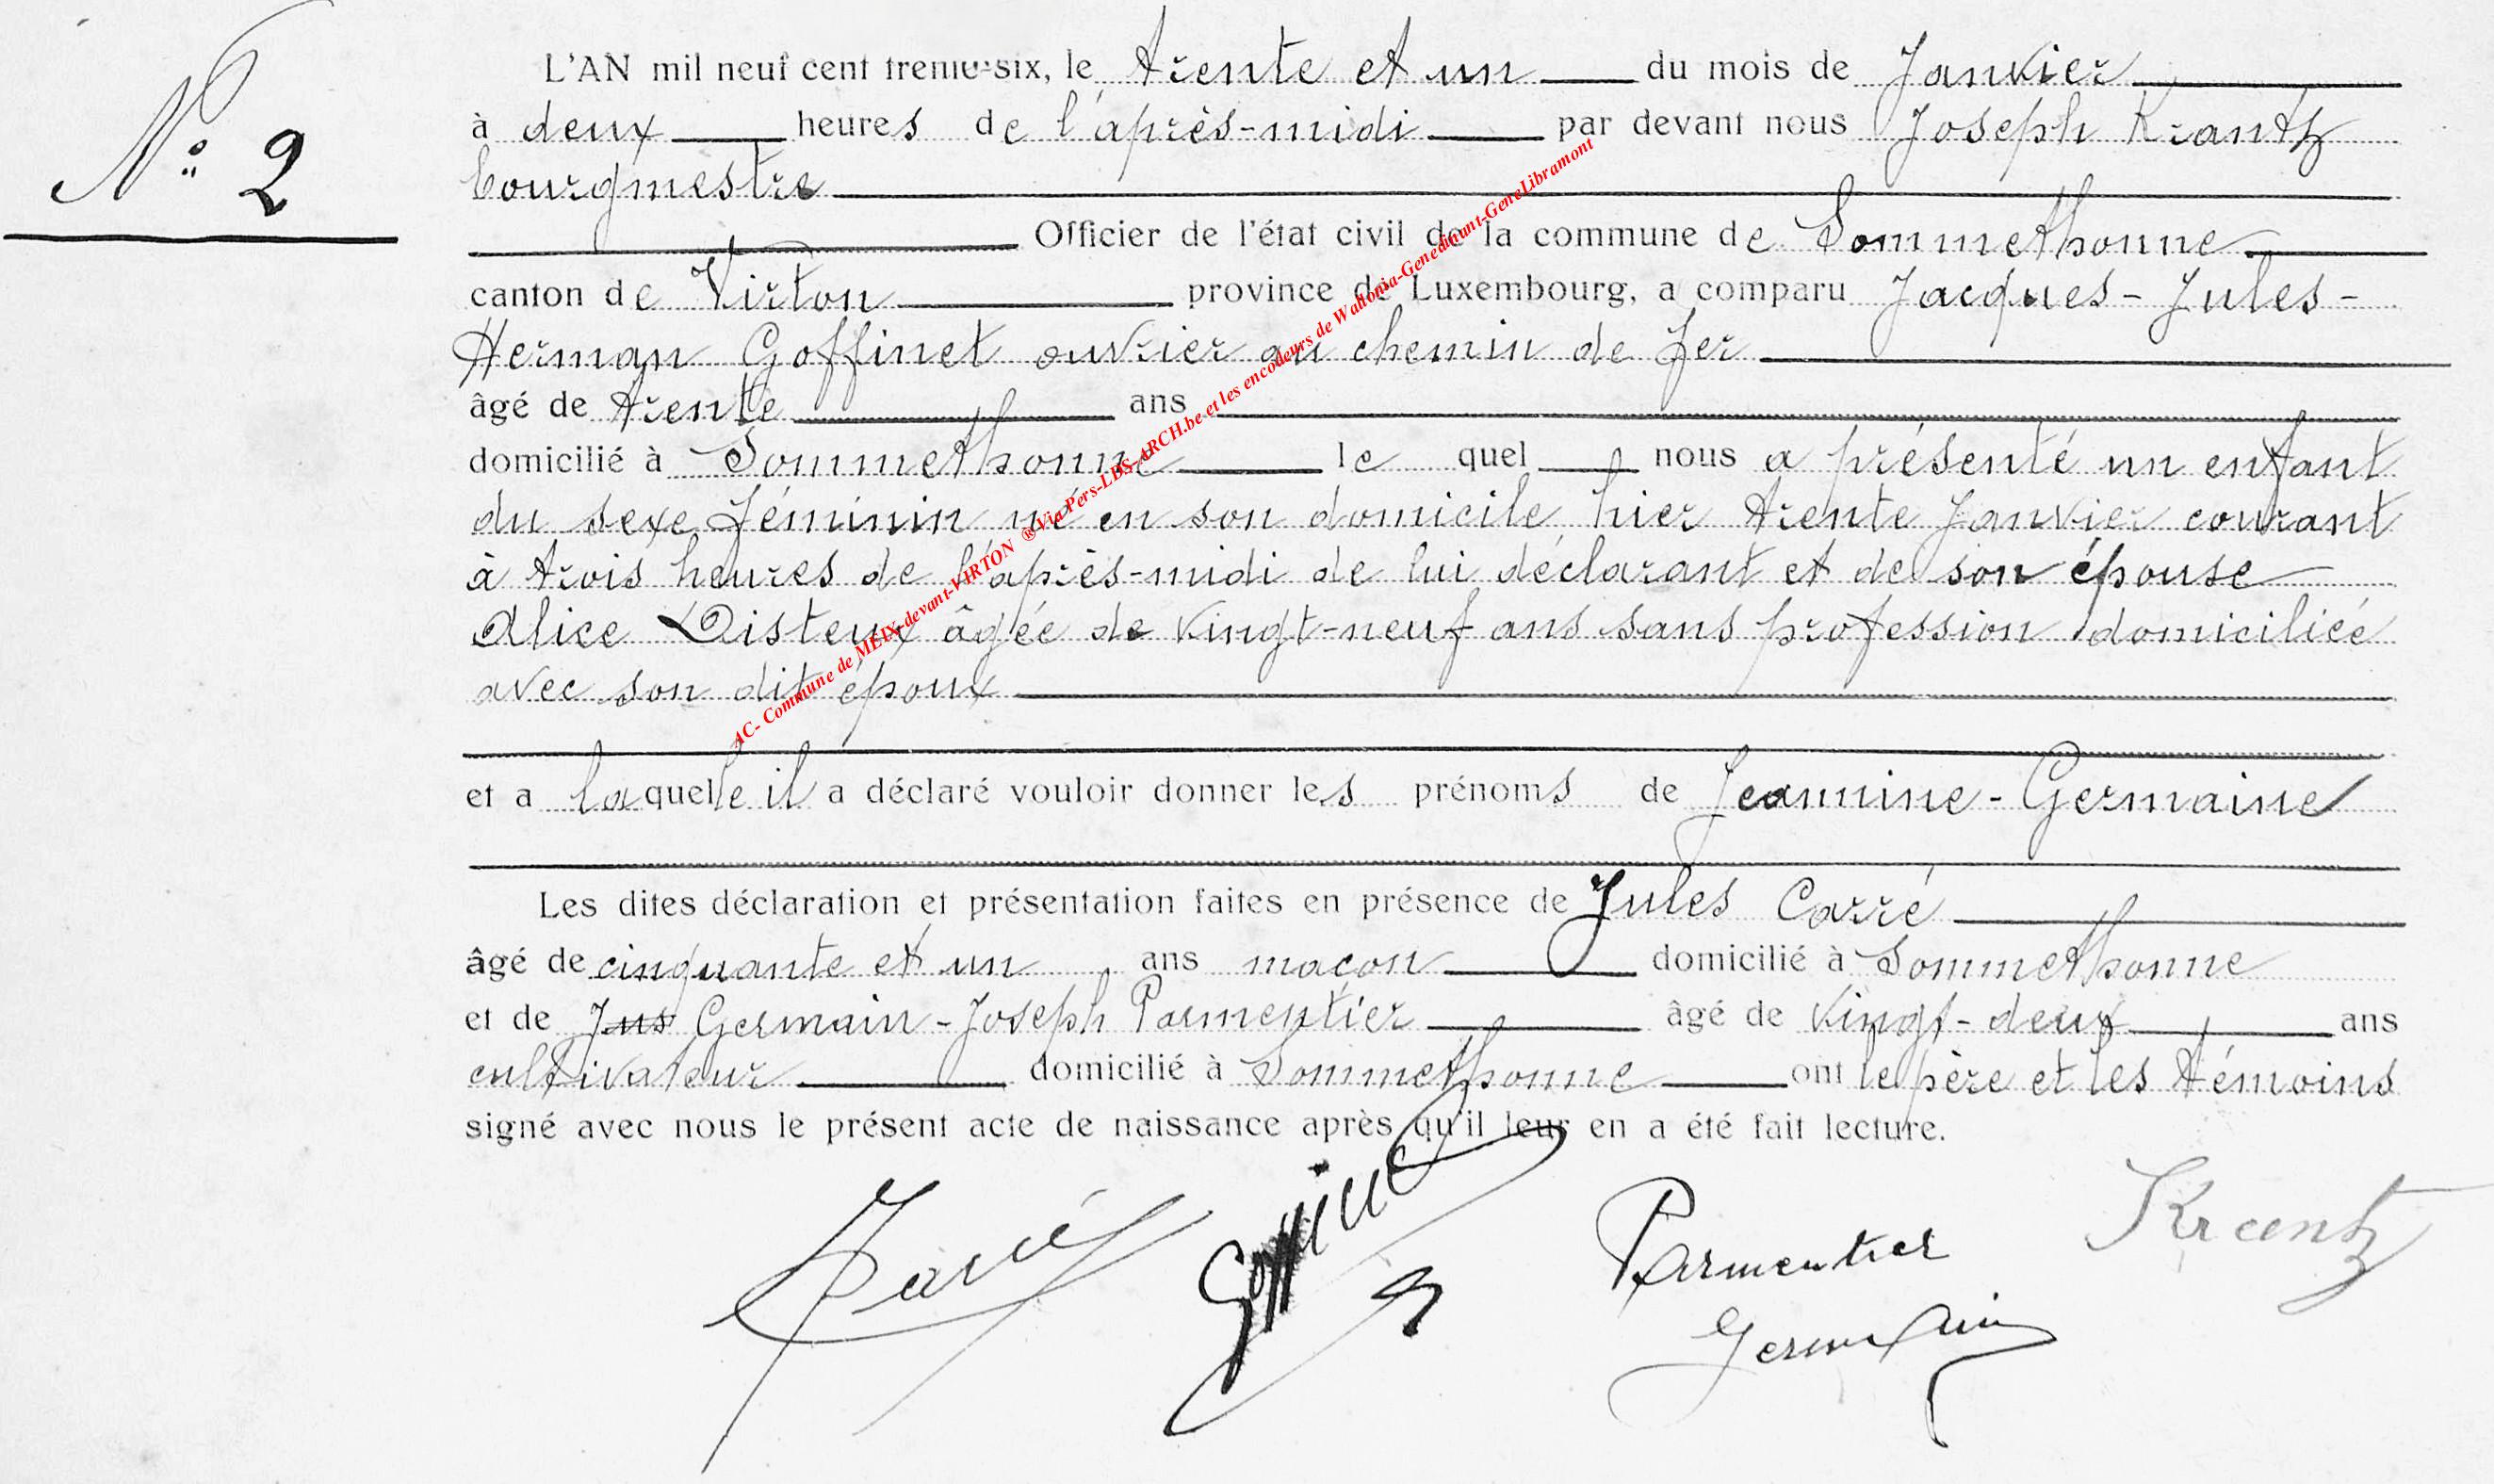 N° 2
L'AN mil neuf cent trente-six, le trente et un du mois de Janvier
à deux heures de l'après-midi par devant nous Joseph Krantz
bourgmestre
Officier de l'état civil de la commune de Sommethonne
canton de Virton province de Luxembourg, a comparu Jacques-Jules-
Herman Goffinet ouvrier au chemin de fer
âgé de trente ans
domicilié à Sommethonne le quel nous a présenté un enfant
du sexe féminin né en son domicile hier trente Janvier courant
à trois heures de l'après-midi de lui déclarant et de son épouse
Alice Disteux âgée de vingt-neuf ans sans profession domiciliée
avec son dit époux
et a laquelle il a déclaré vouloir donner les prénoms de Jeannine-Germaine
Les dites déclaration et présentation faites en présence de Jules Carré
âgé de cinquante et un ans maçon domicilié à Sommethonne
et de Jus Germain-Joseph Parmentier âgé de vingt-deux ans
cultivateur domicilié à Sommethonne ont le père et les témoins
signé avec nous le présent acte de naissance après qu'il leur en a été fait lecture.
J Carré Goffinet Parmentier Krantz
Germain
AC- Commune de MEIX-devant-VIRTON ®Via Pers-LDS-ARCH.be et les encodeurs de Wallonia-Genedinant-GeneLibramont